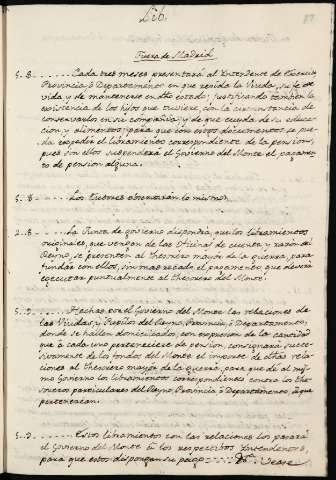 Lib.
87
Fuera de Madrid
5..8. Cada tres meses presentará al Yntendente de Exercito
Provincia, ò Departamento en que resida la Viuda, su fe de
vida y de mantenerse en dho estado; justificando tambien la
existencia de los hijos que tuviere, con la circunstancia de
conservarlos en sú compañia, y de que cuyda de su educa-
cion y alimentos, para que con estos documentos se pue-
da expedir el libramiento correspondiente de la pension,
pues sin ellos suspenderá el Govierno del Monte el pagamen-
to de pension alguna.
5..8. Los tutores observarán lo mismo.
2..8. La Junta de govierno dispondrá, que los libramientos
originales, que vengan de las oficinas de cuenta y razon del
Reyno, se presenten al thesorero mayor de la guerra, para
fundar con ellos, sin mas recado el pagamento que deverá
egecutar puntualmente al thesorero del Monte.
5..9. Hechas por el Govierno del Monte las relaciones de
las Viudas, y Pupilos del Reyno, Provincia, ò Departamento,
donde se hallen domiciliados, con expresion de la cantidad
que à cada uno perteneciere de pension, consignará suces-
sivamente de los fondos del Monte el importe de dhas rela-
ciones al thesorero mayor de la guerra, para que dé al mis-
mo Govierno los libramientos correspondientes contra los the-
soreros particulares del Reyno, Provincia ò Departamentos, à que
pertenezcan.
5..9. Estos libramientos con las relaciones los pasará
el Govierno del Monte à los respectivos Yntendentes,
para que estos dispongan su pago
Vease